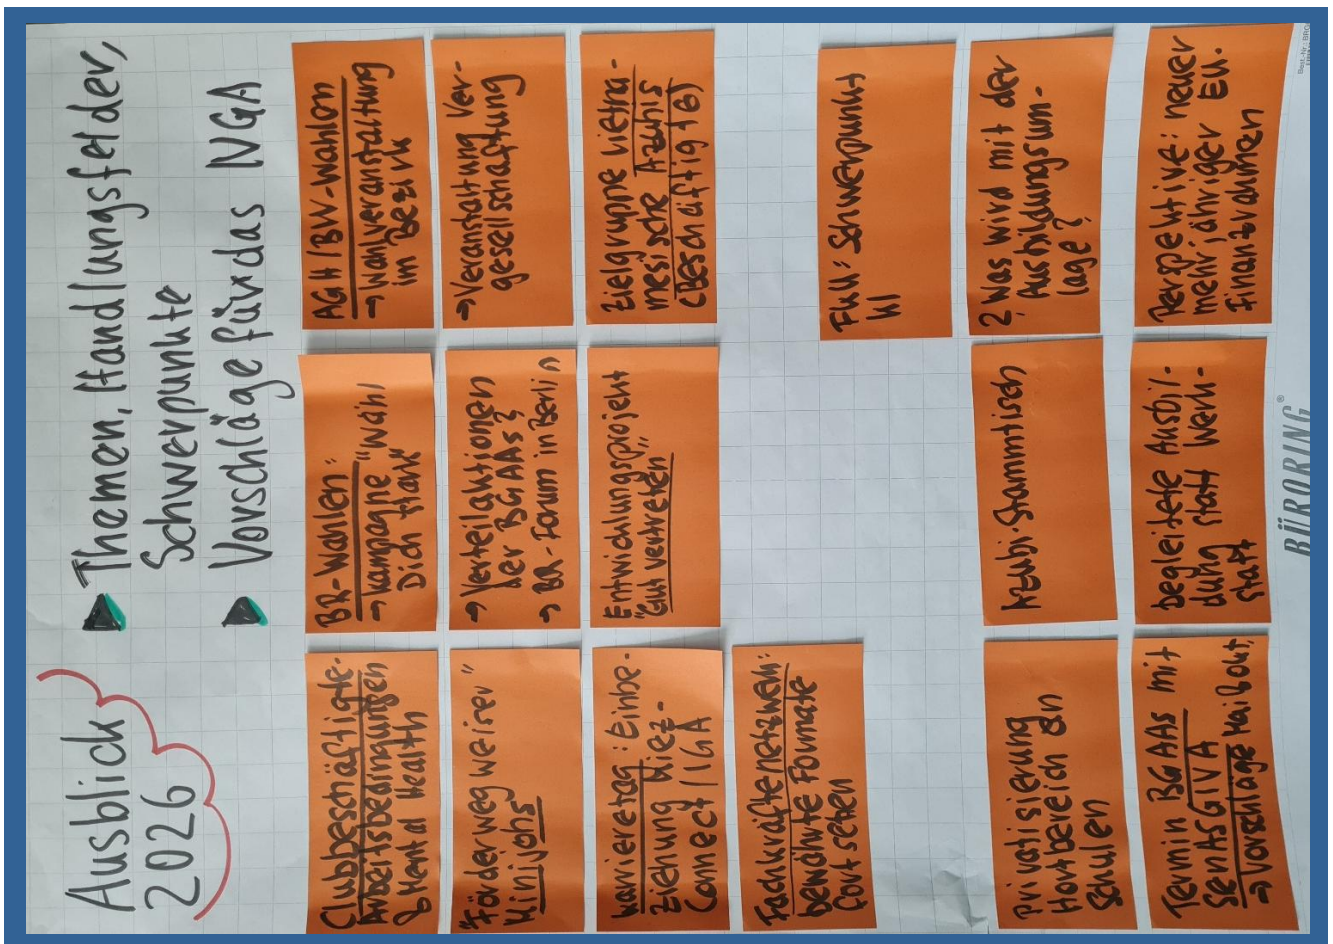 Ausblick
2026
Themen, Handlungsfelder,
Schwerpunkte
Vorschläge für das IVGA
Clubbeschäftigte:
Arbeitsbedingungen
& Mental Health
"Förderwegweiser"
Minijobs
Karrieretag: Einbe-
ziehung Kiez-
Connect/IGA
Fachkräftenetzwerk:
bewährte Formate
fortsetzen
Privatisierung
Hortbereich an
Schulen
Termin BGAAs mit
SenASGIVA
→ Vorschläge
BR-Wahlen:
→ Kampagne "Wähl
Dich stark"
→ Verteilaktionen
der BGAAs?
→ BR-Forum in Berlin
Entwicklungsprojekt
"Gut vertreten"
Azubi-Stammtisch
Begleitete Ausbil-
dung statt Werk-
statt
AGH/BVV-Wahlen
→ Wahlveranstaltung
im Bezirk
→ Veranstaltung Ver-
gesellschaftung
Zielgruppe vietna-
mesische Azubis
(Beschäftigte)
FluU: Schwerpunkt
KI
? Was wird mit der
Ausbildungsum-
lage?
Perspektive: neuer
mehrjähriger EU-
Finanzrahmen
BÜRORING®